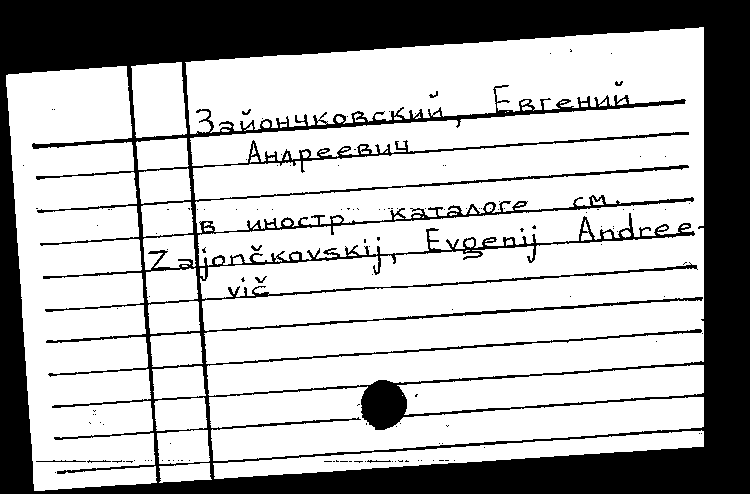 Зайончковский, Евгений
Андреевич
в иностр. каталоге см.
Zajončkovskij, Evgenij Andree-
vič